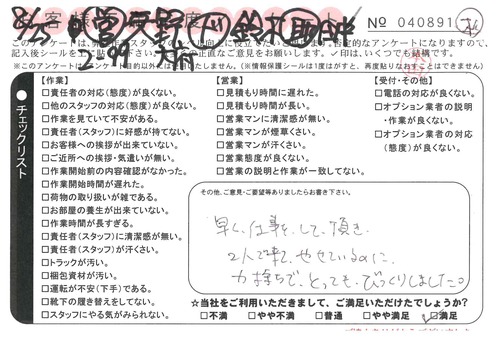 No 040891
このアンケートは、
記入後シールを
印は、いくつでも結構です。
※このアンケートは
(※情報保護シールは1度はがすと、再度貼りなおすことはできません)
●チェックリスト
【作業】
□責任者の対応(態度)が良くない。
□他のスタッフの対応(態度)が良くない。
□作業を見ていて不安がある。
□責任者(スタッフ)に好感が持てない。
□お客様への挨拶が出来ていない。
□ご近所への挨拶・気遣いが無い。
□作業開始前の内容確認がなかった。
□作業開始時間が遅れた。
□荷物の取り扱いが雑である。
□お部屋の養生が出来ていない。
□作業時間が長すぎる。
□責任者(スタッフ)に清潔感が無い。
□責任者(スタッフ)が汗くさい。
□トラックが汚い。
□梱包資材が汚い。
□運転が不安(下手)である。
□靴下の履き替えをしてない。
□スタッフにやる気がみられない。
【営業】
□見積もり時間に遅れた。
□見積もり時間が長い。
□営業マンに清潔感が無い。
□営業マンが煙草くさい。
□営業マンが汗くさい。
□営業態度が良くない。
□営業の説明と作業が一致してない。
【受付・その他】
□電話の対応が良くない。
□オプション業者の説明
・作業が良くない。
□オプション業者の対応
(態度)が良くない。
その他、ご意見・ご要望等ありましたらお書き下さい。
早く、仕事を、して、頂き、
2人で来て、やせているのに、
力持ちで、とっても、びっくりしました。
☆当社をご利用いただきまして、ご満足いただけたでしょうか?
□不満 □やや不満 □普通 □やや満足 □満足